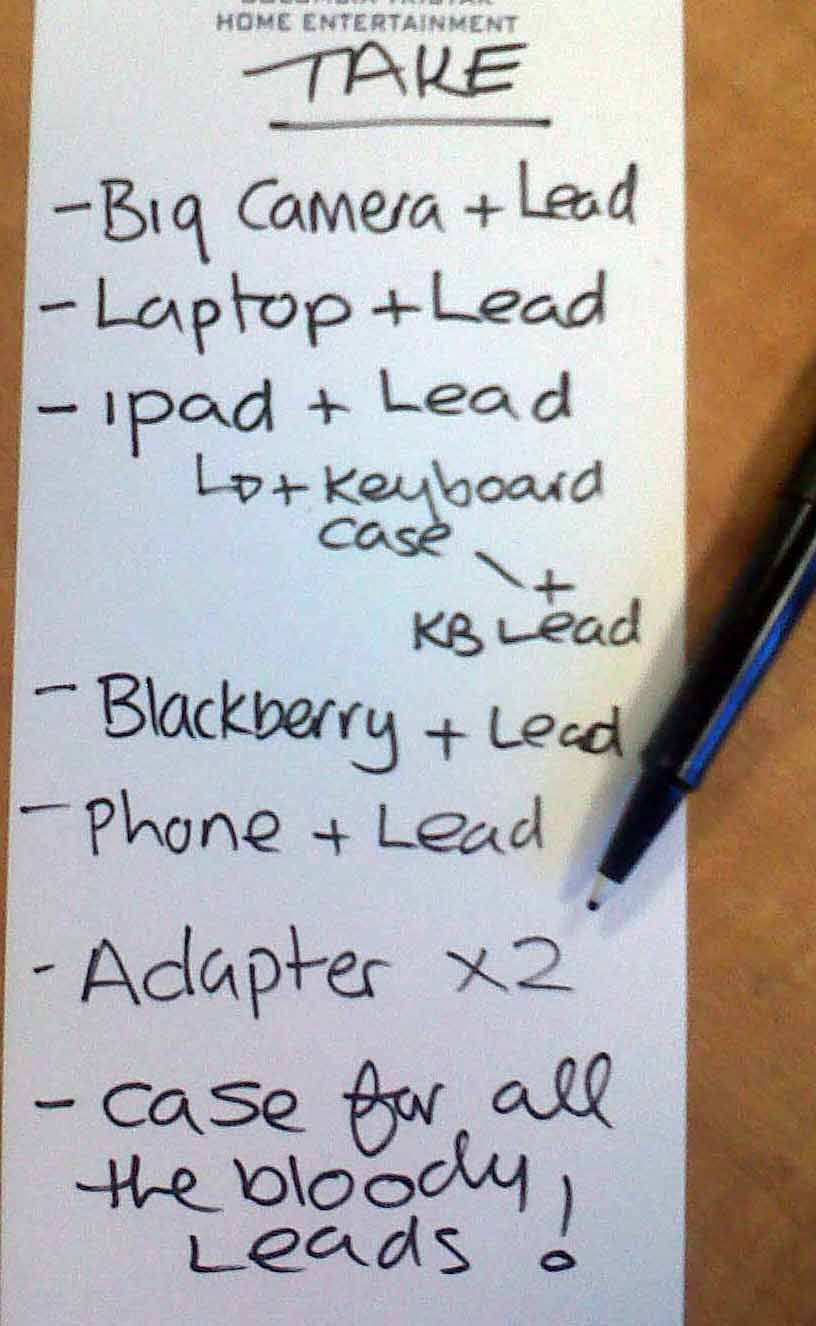 HOME ENTERTAINMENT
TAKE
- Big Camera + Lead
- Laptop + Lead
- ipad + Lead
+ Keyboard
case
+
KB Lead
- Blackberry + Lead
- Phone + Lead
- Adapter x2
- case for all
the bloody
Leads !